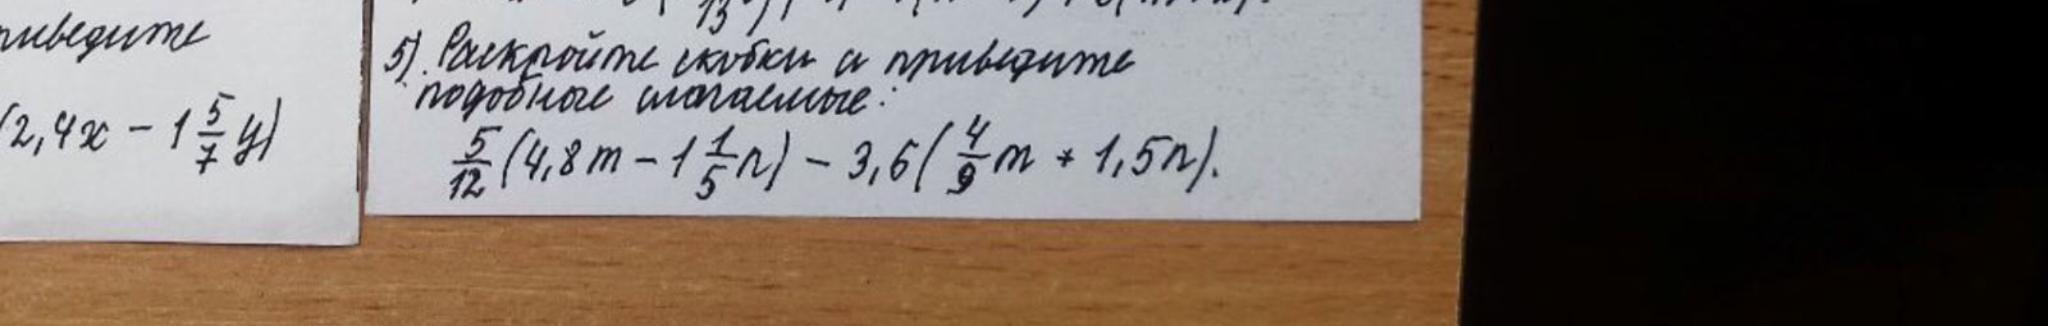 приведите
(2,4x - 1 5/7 y)
5). Раскройте скобки и приведите
подобные слагаемые:
5/12 (4,8m - 1 1/5 n) - 3,6 (4/9 m + 1,5n).